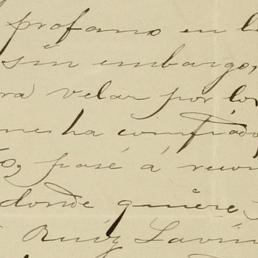 profano en l
sin embargo,
ra velar por lo
me ha confiado
to, pasé á recon
donde quiere
Ruiz Lavin